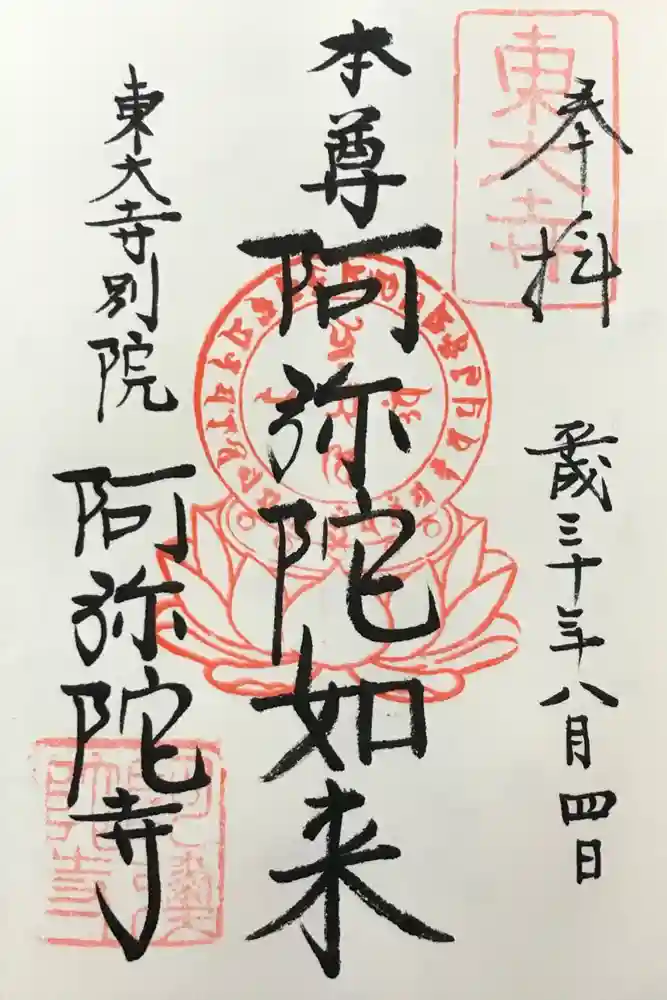 奉拝
東大寺
歳三十年八月四日
本尊
阿弥陀如来
東大寺別院
阿弥陀寺